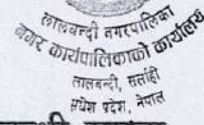 लालबन्दी नगरपालिका
नगर कार्यपालिकाको कार्यालय
लालबन्दी, सर्लाही
मधेश प्रदेश, नेपाल